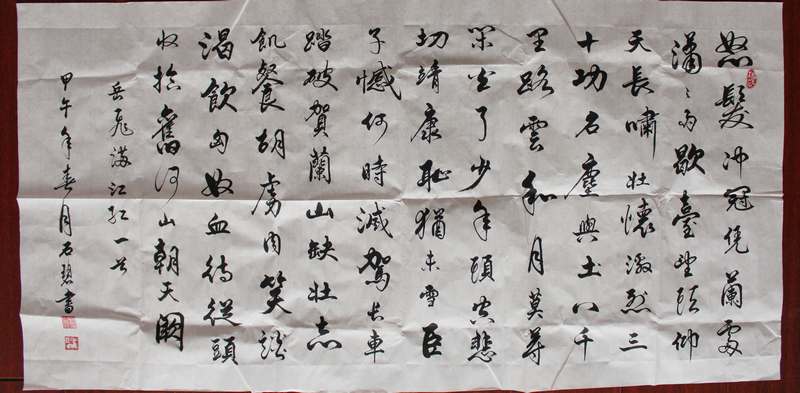 怒髮冲冠凭蘭處
瀟〻雨歇臺望眼仰
天長嘯壯懷激烈三
十功名塵與土八千
里路雲和月莫等
閑白了少年頭空悲
切靖康恥猶未雪臣
子憾何時滅駕長車
踏破賀蘭山缺壯志
飢餐胡虜肉笑談
渴飲匈奴血待從頭
收拾舊河山朝天闕
岳飛滿江紅一首
甲午年春月石碧書